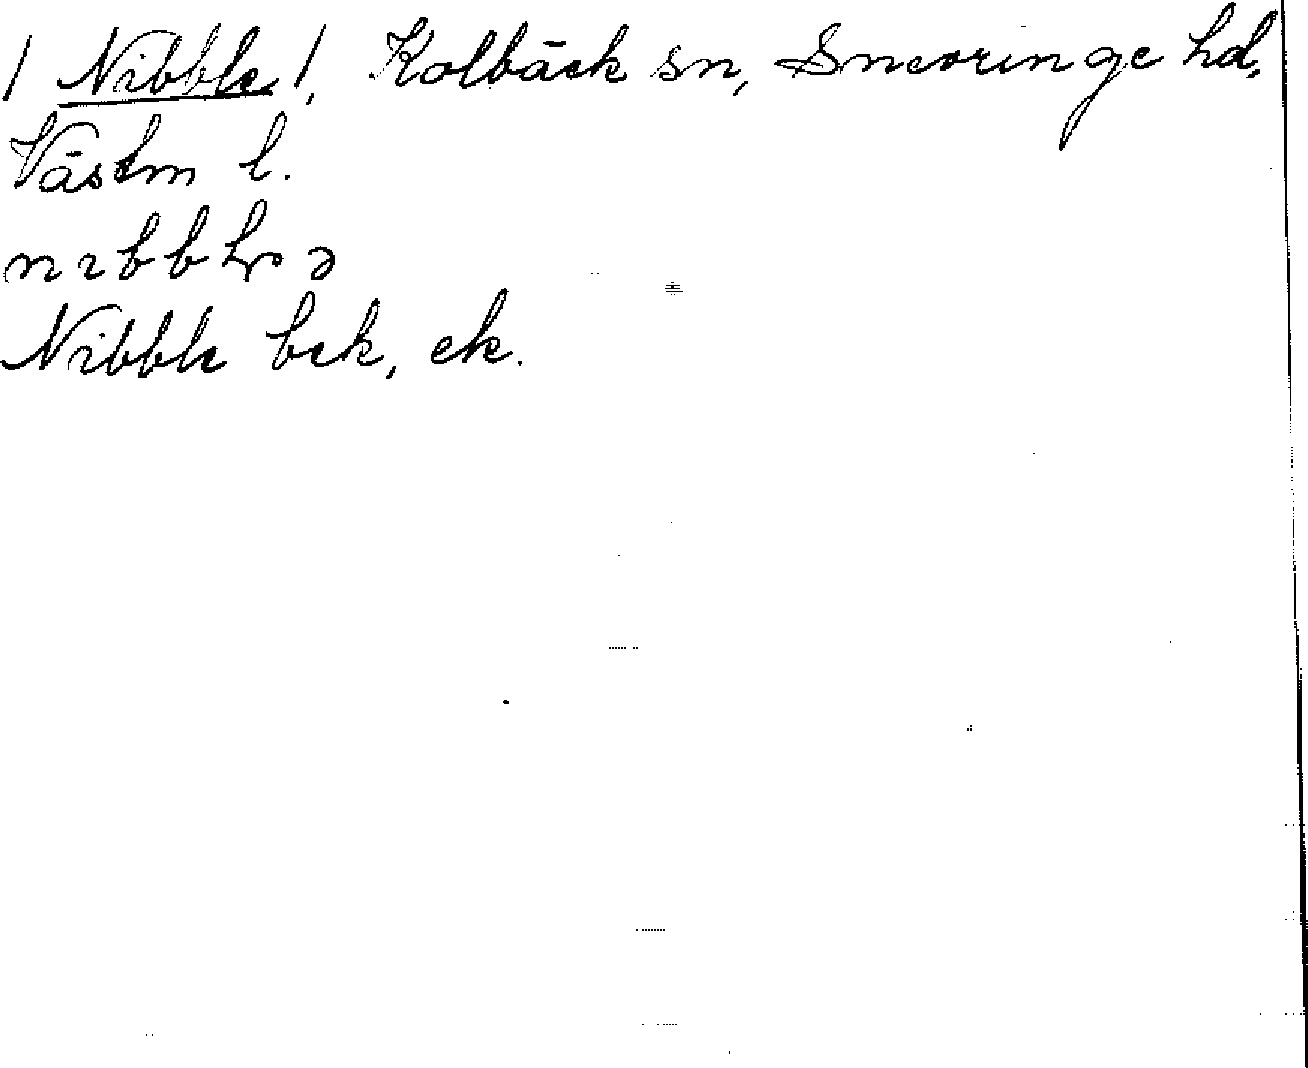 / Nibble /, Kolbäck sn, Snevringe hd,
Västm l.
Nibble bek, ek.